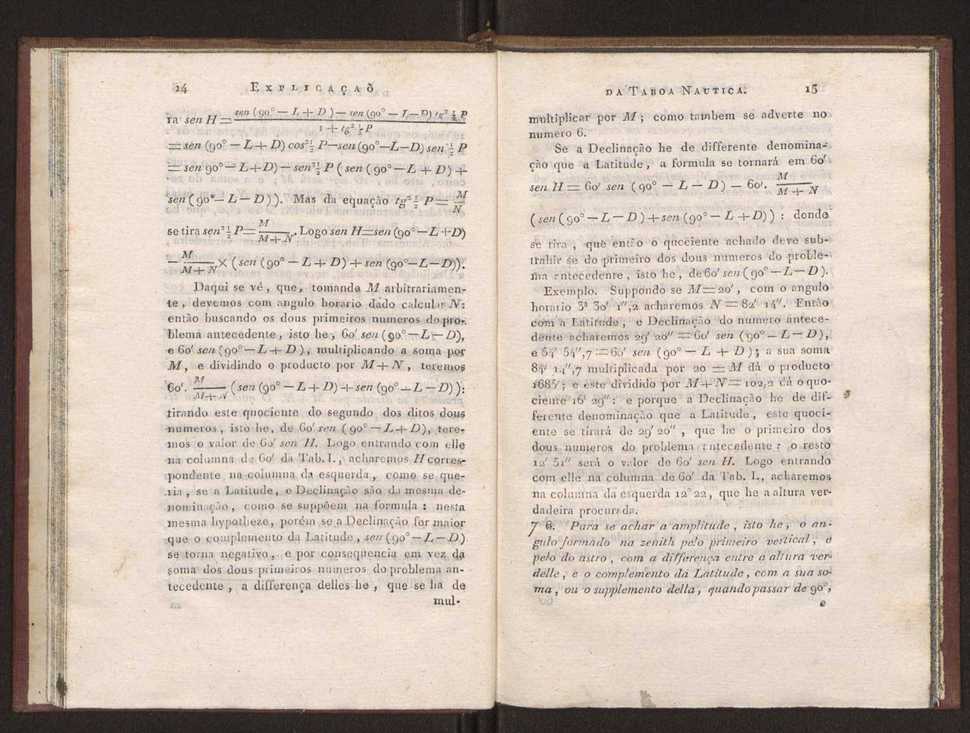 14 EXPLICAÇAÕ
ra sen H = sen (90° − L + D) − sen (90° − L − D) tg² ½ P / 1 + tg² ½ P
= sen (90° − L + D) cos² ½ P − sen (90° − L − D) sen² ½ P
= sen 90° − L + D) − sen² ½ P ( sen (90° − L + D) +
sen (90° − L − D)). Mas da equação tg² ½ P = M / N
se tira sen² ½ P = M / M + N. Logo sen H = sen (90° − L + D)
− M / M + N × ( sen (90° − L + D) + sen (90° − L − D)).
Daqui se vê, que, tomando M arbitrariamen-
te, devemos com angulo horario dado calcular N:
então buscando os dous primeiros numeros do pro-
blema antecedente, isto he, 60' sen (90° − L − D),
e 60' sen (90° − L + D), multiplicando a soma por
M, e dividindo o producto por M + N, teremos
60'. M / M + N ( sen (90° − L + D) + sen (90° − L − D)):
tirando este quociente do segundo dos ditos dous
numeros, isto he, de 60' sen (90° − L + D), tere-
mos o valor de 60' sen H. Logo entrando com elle
na columna de 60' da Tab. I., acharemos H corres-
pondente na columna da esquerda, como se que-
ria, se a Latitude, e Declinação são da mesma de-
nominação, como se suppõem na formula: nesta
mesma hypotheze, porém se a Declinação for maior
que o complemento da Latitude, sen (90° − L − D)
se torna negativo, e por consequencia em vez da
soma dos dous primeiros numeros do problema an-
tecedente, a differença delles he, que se ha de
mul-
DA TABOA NAUTICA. 15
multiplicar por M; como tambem se adverte no
numero 6.
Se a Declinação he de differente denomina-
ção que a Latitude, a formula se tornará em 60'
sen H = 60' sen (90° − L − D) − 60'. M / M + N
( sen (90° − L − D) + sen (90° − L + D)) : donde
se tira, que então o quociente achado deve sub-
trahir se do primeiro dos dous numeros do proble-
ma antecedente, isto he, de 60' sen (90° − L − D).
Exemplo. Suppondo se M = 20', com o angulo
horario 3ª 30' 1",2 acharemos N = 82' 14". Então
com a Latitude, e Declinação do numero antece-
dente acharemos 29' 20" = 60' sen (90° − L − D),
e 54' 54",7 = 60' sen (90° − L + D); a sua soma
84' 14",7 multiplicada por 20 = M dá o producto
1685'; e este dividido por M + N = 102,2 dá o quo-
ciente 16' 29": e porque a Declinação he de dif-
ferente denominação que a Latitude, este quoci-
ente se tirará de 29' 20", que he o primeiro dos
dous numeros do problema antecedente: o resto
12' 51" será o valor de 60' sen H. Logo entrando
com elle na columna de 60' da Tab. I., acharemos
na columna da esquerda 12° 22, que he a altura ver-
dadeira procurada.
7 6. Para se achar a amplitude, isto he, o an-
gulo formado na zenith pelo primeiro vertical, e
pelo do astro, com a differença entre a altura ver-
delle, e o complemento da Latitude, com a sua so-
ma, ou o supplemento della, quando passar de 90°,
e